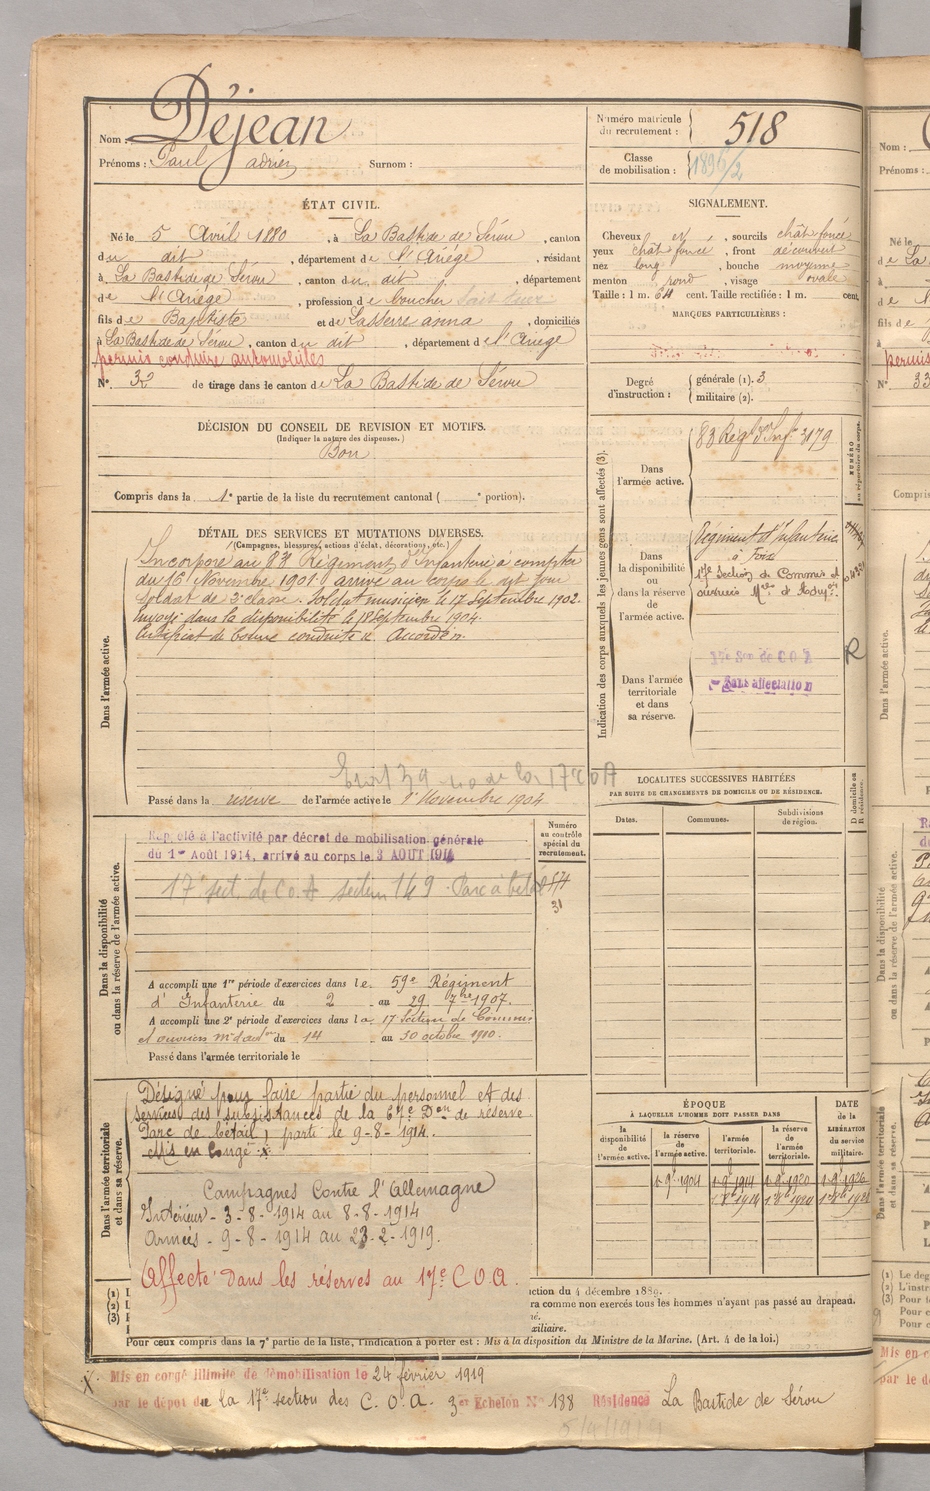 Nom : Déjean
Prénoms : Paul adrien Surnom :
Numéro matricule du recrutement : 518
Classe de mobilisation : 1896/2
ÉTAT CIVIL.
Né le 5 Avril 1880, à La Bastide de Sérou, canton
du dit, département de l'Ariège, résidant
à La Bastide de Sérou, canton du dit, département
de l'Ariège, profession de boucher
fils de Baptiste et de Lasserre anna, domiciliés
à La Bastide de Sérou, canton du dit, département de l'Ariège
permis conduire automobiles
N° 32 de tirage dans le canton de La Bastide de Sérou
SIGNALEMENT.
Cheveux et, sourcils chât foncé
yeux chât foncé, front découvert
nez long, bouche moyenne
menton rond, visage ovale
Taille : 1 m. 64 cent. Taille rectifiée : 1 m. cent.
MARQUES PARTICULIÈRES :
Degré d'instruction : générale (1). 3
militaire (2).
DÉCISION DU CONSEIL DE REVISION ET MOTIFS.
(Indiquer la nature des dispenses.)
Bon
Compris dans la 1e partie de la liste du recrutement cantonal ( e portion).
DÉTAIL DES SERVICES ET MUTATIONS DIVERSES.
(Campagnes, blessures, actions d'éclat, décorations, etc.)
Dans l'armée active.
Incorporé au 83 Régiment d'Infanterie à compter
du 16 Novembre 1901 arrivé au corps le dit jour
Soldat de 2e classe. Soldat musicien le 17 Septembre 1902.
Envoyé dans la disponibilité le 18 Septembre 1904.
Certificat de bonne conduite " Accordé ".
Passé dans la réserve de l'armée active le 1er Novembre 1904
Indication des corps auxquels les jeunes gens sont affectés (3).
NUMÉRO au répertoire du corps.
Dans l'armée active.
83 Régt d'Infie 3179
Dans la disponibilité ou dans la réserve de l'armée active.
Régiment d'Infanterie
à Foix
17e Section de Commis et
ouvriers Mres d'Admon.
R
Dans l'armée territoriale et dans sa réserve.
17e Son de COA
Sans affectation
Dans la disponibilité ou dans la réserve de l'armée active.
Rappelé à l'activité par décret de mobilisation générale
du 1er Août 1914, arrivé au corps le 3 AOUT 1914
17 sect de C.O.A section 149 - Parc à bétail
Numéro au contrôle spécial du recrutement.
31
A accompli une 1re période d'exercices dans le 59e Régiment
d'Infanterie du 2 au 29 7bre 1907.
A accompli une 2e période d'exercices dans la 17 Section de Commis
et ouvriers m. d'adon du 14 au 30 octobre 1910.
Passé dans l'armée territoriale le
LOCALITES SUCCESSIVES HABITÉES
PAR SUITE DE CHANGEMENTS DE DOMICILE OU DE RÉSIDENCE.
Dates. Communes. Subdivisions de région. D domicile ou R résidence.
Dans l'armée territoriale et dans sa réserve.
Désigné pour faire partie du personnel et des
services des subsistances de la 67e Don de réserve
Parc de bétail, parti le 9-8-1914.
Mis en congé x
Campagnes Contre l'Allemagne
Intérieur - 3-8-1914 au 8-8-1914
Armées - 9-8-1914 au 23-2-1919.
Affecté dans les réserves au 17e C.O.A.
ÉPOQUE
À LAQUELLE L'HOMME DOIT PASSER DANS
la disponibilité de l'armée active. la réserve de l'armée active. l'armée territoriale. la réserve de l'armée territoriale.
DATE de la LIBÉRATION du service militaire.
1-9bre 1904 1-9bre 1914 1-9bre 1920 1-9bre 1926
(1)
(2)
(3)
ction du 4 décembre 1889.
ra comme non exercés tous les hommes n'ayant pas passé au drapeau.
xiliaire.
Pour ceux compris dans la 7e partie de la liste, l'indication à porter est : Mis à la disposition du Ministre de la Marine. (Art. 4 de la loi.)
X Mis en congé illimité de démobilisation le 24 février 1919
par le dépôt de la 17e section des C.O.A. 3er Echelon No 188 Résidence La Bastide de Sérou